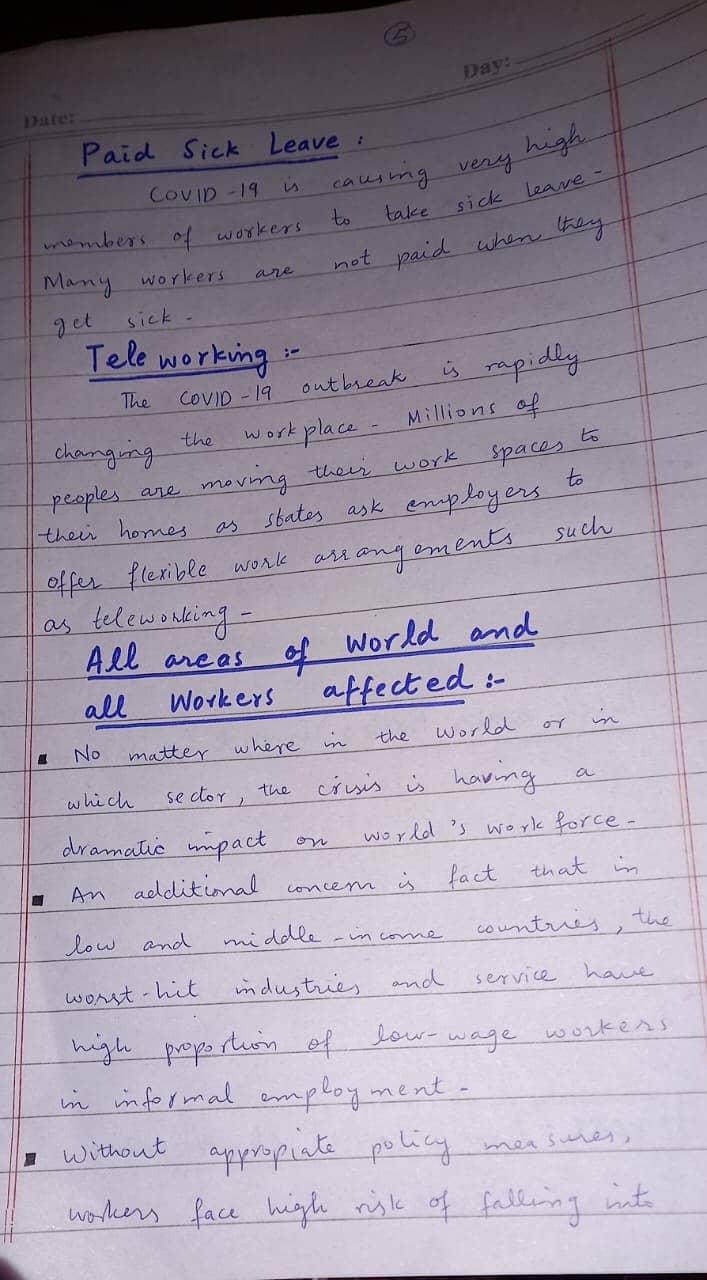 5
Day:
Date:
Paid Sick Leave :
COVID-19 is causing very high
members of workers to take sick leave -
Many workers are not paid when they
get sick -
Tele working :-
The COVID-19 outbreak is rapidly
changing the work place - Millions of
peoples are moving their work spaces to
their homes as states ask employers to
offer flexible work arrangements such
as teleworking -
All areas of world and
all Workers affected :-
▪ No matter where in the world or in
which sector, the crisis is having a
dramatic impact on world's work force -
▪ An additional concern is fact that in
low and middle-income countries, the
worst-hit industries and service have
high proportion of low-wage workers
in informal employment -
▪ Without appropiate policy measures,
workers face high risk of falling into